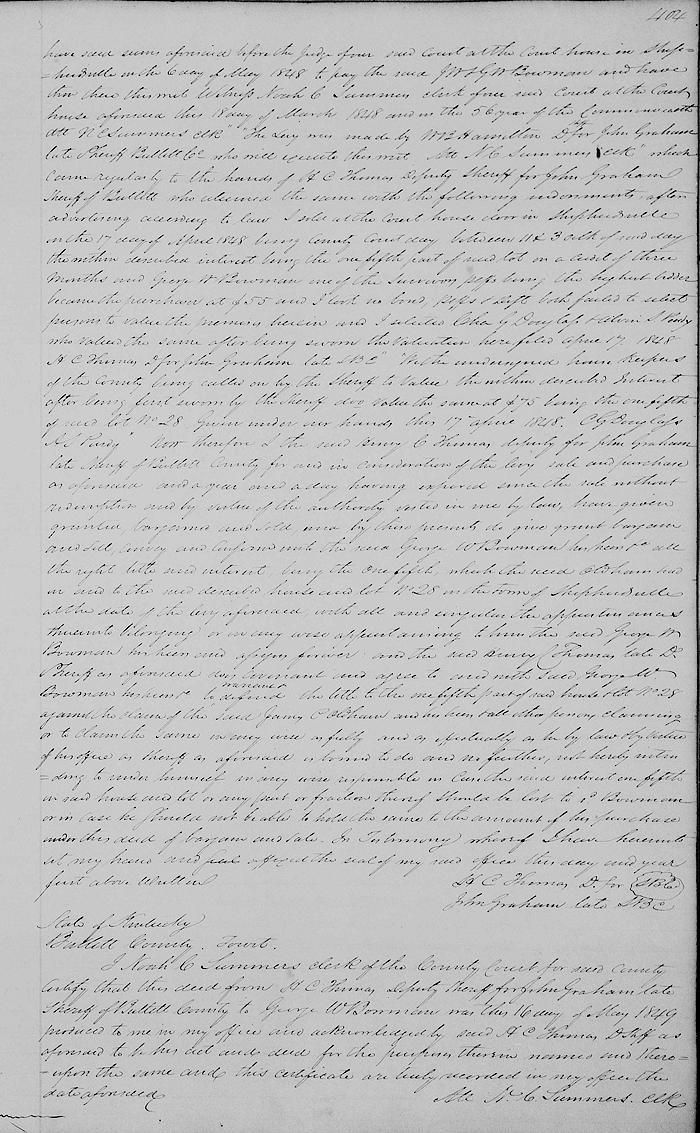 404
have said sums aforesaid before the Judge of our said Court at the Court house in Shep-
=herdsville on the 6 day of May 1848 to pay the said J W & G W Bowman and have
then there this writ Witness Noah C Summers clerk of our said Court at the Court
house aforesaid this 18 day of March 1848 and in the 56 year of the Commonwealth
att N C Summers clk" "The Levy was made by W B Hamilton D for John Graham
late Sheriff Bullett Co who will execute this writ Att N C Summers clk" which
came regularly to the hands of H C Thomas Deputy Sheriff for John Graham
Sheriff of Bullett who returned the same with the following indorsments, after
advertising according to law I sold at the Court house door in Shepherdsville
on the 17 day of April 1848 being County Court day between 11 & 3 oclk of said day
the within described interest being the one fifth part of said lot on a credit of three
Months and George W Bowman one of the Survivors being the highest bidder
became the purchaser at $55 and I took no bond, both failed to select
persons to value the premises herein and I selected Chas G Douglass & Alvin S Purdy
who valued the same after being sworn the Valuation here filed April 17 1848
H C Thomas D for John Graham late SBC" We the undersigned house keepers
of the County being called on by the Sheriff to Value the within described Interest
after being first sworn by the Sheriff doo value the same at $75 being the one fifth
of said lot No 28 Given under our hands this 17 April 1848. C G Douglass
A S Purdy" Now therefore I the said Henry C Thomas deputy for John Graham
late Sheriff of Bullett County for and in consideration of the levy sale and purchase
as aforesaid and a year and a day having expired since the sale without
redemption and by virtue of the authority vested in me by law, have given
granted, bargained and sold and by these presents do give grant bargain
and sell, convey and confirm unto the said George W Bowman his heirs &c all
the right title and interest, being the one fifth, which the said Oldham had
in and to the said described house and lot No 28 in the town of Shepherdsville
at the date of the levy aforesaid, with all and singular the appurtenances
thereunto belonging or in any wise appertaining to him the said George W
Bowman his heirs and assigns forever and the said Henry C Thomas late D
Sheriff as aforesaid does covenant and agree to and with said George W
Bowman his heirs &c to warrant & defend the title to the one fifth part of said house & lot No 28
against the claim of the said James C Oldham and his heirs & all other persons claiming
or to claim the same in any wise as fully and as effectually as he by law by virtue
of his office as Sheriff as aforesaid is bound to do and no further, not hereby inten
=ding to render himself in any wise responsible in case the said interest one fifth
in said house and lot or any part or fraction thereof should be lost to sd Bowman
or in case he should not be able to hold the same to the amount of his purchase
under this deed of bargain and sale. In Testimony whereof I have hereunto
set my hand and affixed the seal of my said office this day and year
first above Written
H C Thomas D. for
John Graham late SBC
State of Kentucky
Bullett County. Towit.
I Noah C Summers clerk of the County Court for said county
certify that this deed from H C Thomas Deputy Sheriff for John Graham late
Sheriff of Bullett County to George W Bowman was this 16 day of May 1849
produced to me in my office and acknowledged by said H C Thomas D Shff as
aforesaid to be his act and deed for the purposes therein named and there=
-upon the same and this certificate are truly recorded in my office the
date aforesaid
Att N. C. Summers. clk